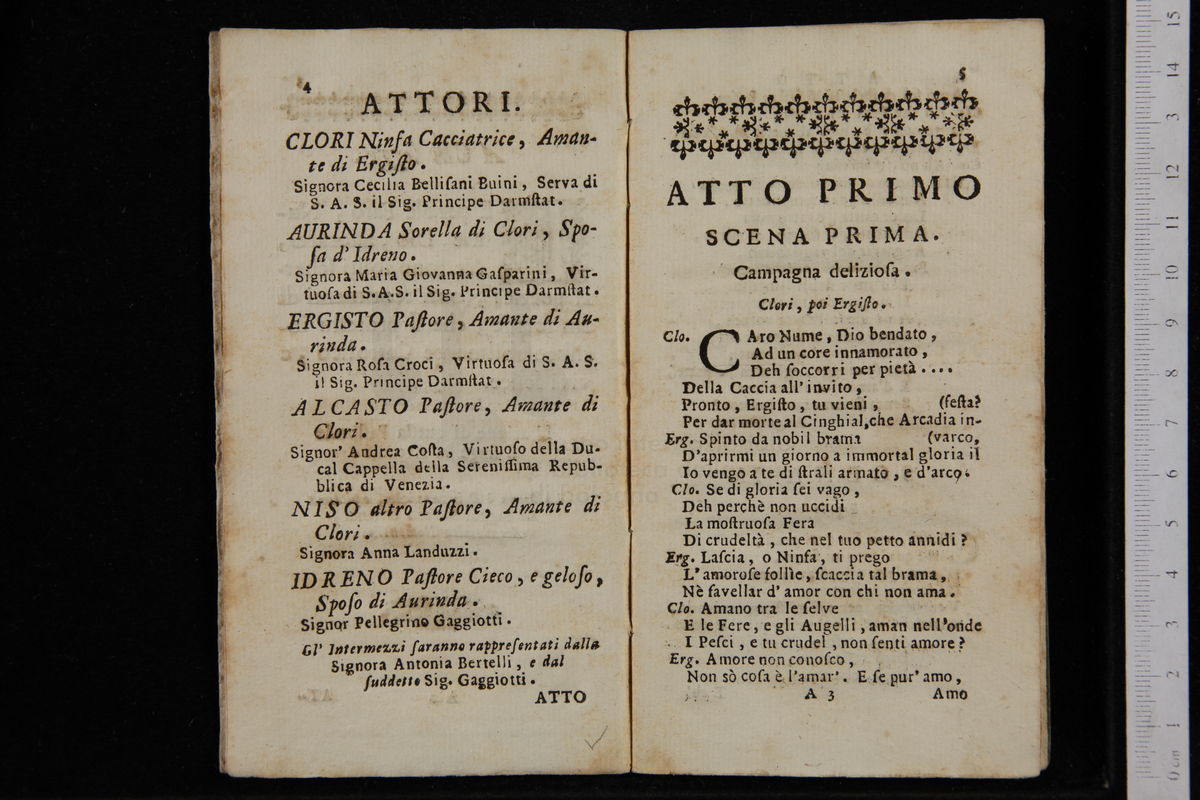 4
ATTORI.
CLORI Ninfa Cacciatrice, Aman-
te di Ergiſto.
Signora Cecilia Belliſani Buini, Serva di
S. A. S. il Sig. Principe Darmſtat.
AURINDA Sorella di Clori, Spo-
ſa d' Idreno.
Signora Maria Giovanna Gaſparini, Vir-
tuoſa di S.A.S. il Sig. Principe Darmſtat.
ERGISTO Paſtore, Amante di Au-
rinda.
Signora Roſa Croci, Virtuoſa di S. A. S.
il Sig. Principe Darmſtat.
ALCASTO Paſtore, Amante di
Clori.
Signor' Andrea Coſta, Virtuoſo della Du-
cal Cappella della Sereniſſima Repub-
blica di Venezia.
NISO altro Paſtore, Amante di
Clori.
Signora Anna Landuzzi.
IDRENO Paſtore Cieco, e geloſo,
Spoſo di Aurinda.
Signor Pellegrino Gaggiotti.
Gl' Intermezzi ſaranno rappreſentati dalla
Signora Antonia Bertelli, e dal
ſuddetto Sig. Gaggiotti.
ATTO
5
ATTO PRIMO
SCENA PRIMA.
Campagna delizioſa.
Clori, poi Ergiſto.
Clo. CAro Nume, Dio bendato,
Ad un core innamorato,
Deh ſoccorri per pietà....
Della Caccia all' invito,
Pronto, Ergiſto, tu vieni, (feſta?
Per dar morte al Cinghial, che Arcadia in-
Erg. Spinto da nobil brama (varco,
D'aprirmi un giorno a immortal gloria il
Io vengo a te di ſtrali armato, e d'arco.
Clo. Se di gloria ſei vago,
Deh perchè non uccidi
La moſtruoſa Fera
Di crudeltà, che nel tuo petto annidi?
Erg. Laſcia, o Ninfa, ti prego
L' amoroſe follìe, ſcaccia tal brama,
Nè favellar d' amor con chi non ama.
Clo. Amano tra le ſelve
E le Fere, e gli Augelli, aman nell'onde
I Peſci, e tu crudel, non ſenti amore?
Erg. Amore non conoſco,
Non sò coſa è l'amar'. E ſe pur' amo,
A 3 Amo
0 cm 1 2 3 4 5 6 7 8 9 10 11 12 13 14 15